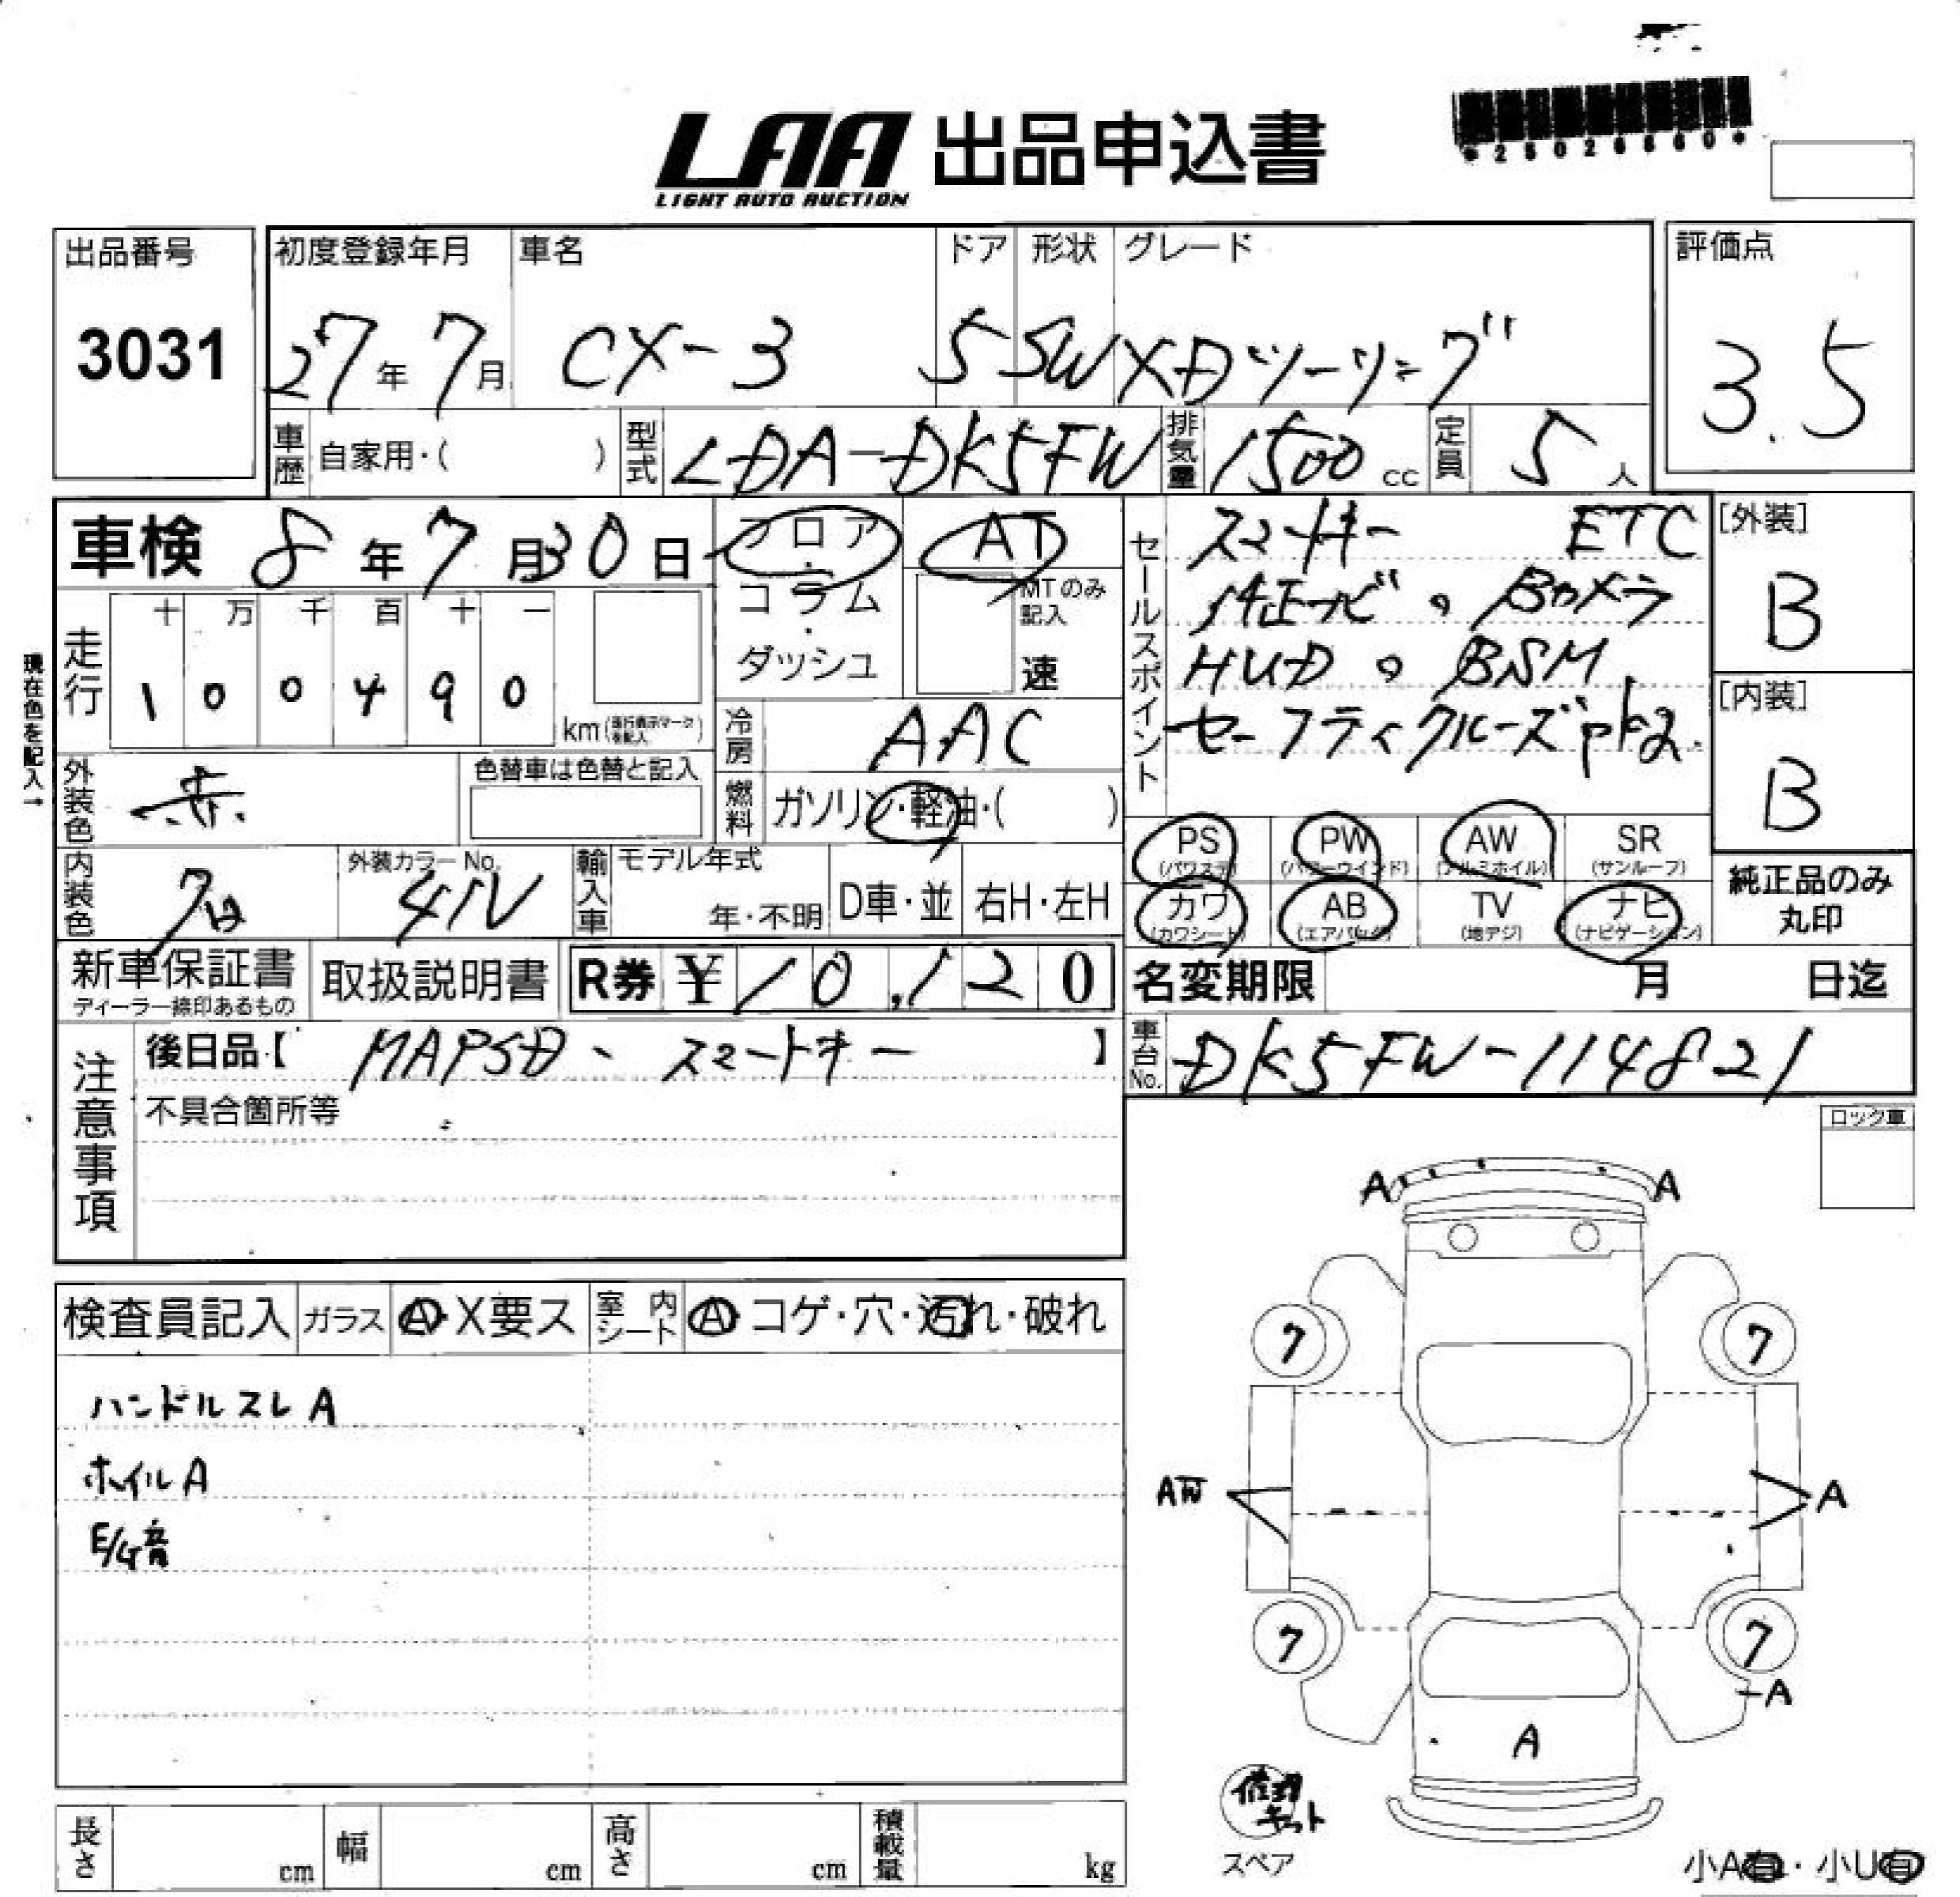 LAA 出品申込書
LIGHT AUTO AUCTION
出品番号
3031
初度登録年月 車名 ドア 形状 グレード
27年 7月 CX-3 5 SW XDツーリング
評価点
3.5
車歴 自家用・( ) 型式 LDA-DK5FW 排気量 1500 cc 定員 5 人
車検 8年 7月 30日
フロア・コラム・ダッシュ
AT
MTのみ記入
速
セールスポイント
スマートキー ETC
純正ナビ。Bカメラ
HUD。BSM
セーフティクルーズpkg.
[外装]
B
[内装]
B
現在色を記入→
走行 十 万 千 百 十 一
1 0 0 4 9 0 km(走行表示マークを記入)
冷房 AAC
外装色 赤.
色替車は色替と記入
燃料 ガソリン・軽油・( )
PS (パワステ) PW (パワーウインド) AW (アルミホイル) SR (サンルーフ)
カワ (カワシート) AB (エアバッグ) TV (地デジ) ナビ (ナビゲーション)
純正品のみ丸印
内装色 クロ 外装カラーNo. 41V
輸入車 モデル年式 年・不明 D車・並 右H・左H
新車保証書 取扱説明書 R券 ¥10,120
名変期限 月 日迄
車台No. DK5FW-114821
注意事項
後日品【 MAPSD、スマートキー 】
不具合箇所等
ロック車
検査員記入 ガラス A・X要ス 室内シート A コゲ・穴・汚れ・破れ
ハンドルスレA
ホイルA
E/G音
A A
7 7
AW A
7 7
A
A
修理キット
スペア
小A有・小U有
長さ cm 幅 cm 高さ cm 積載量 kg